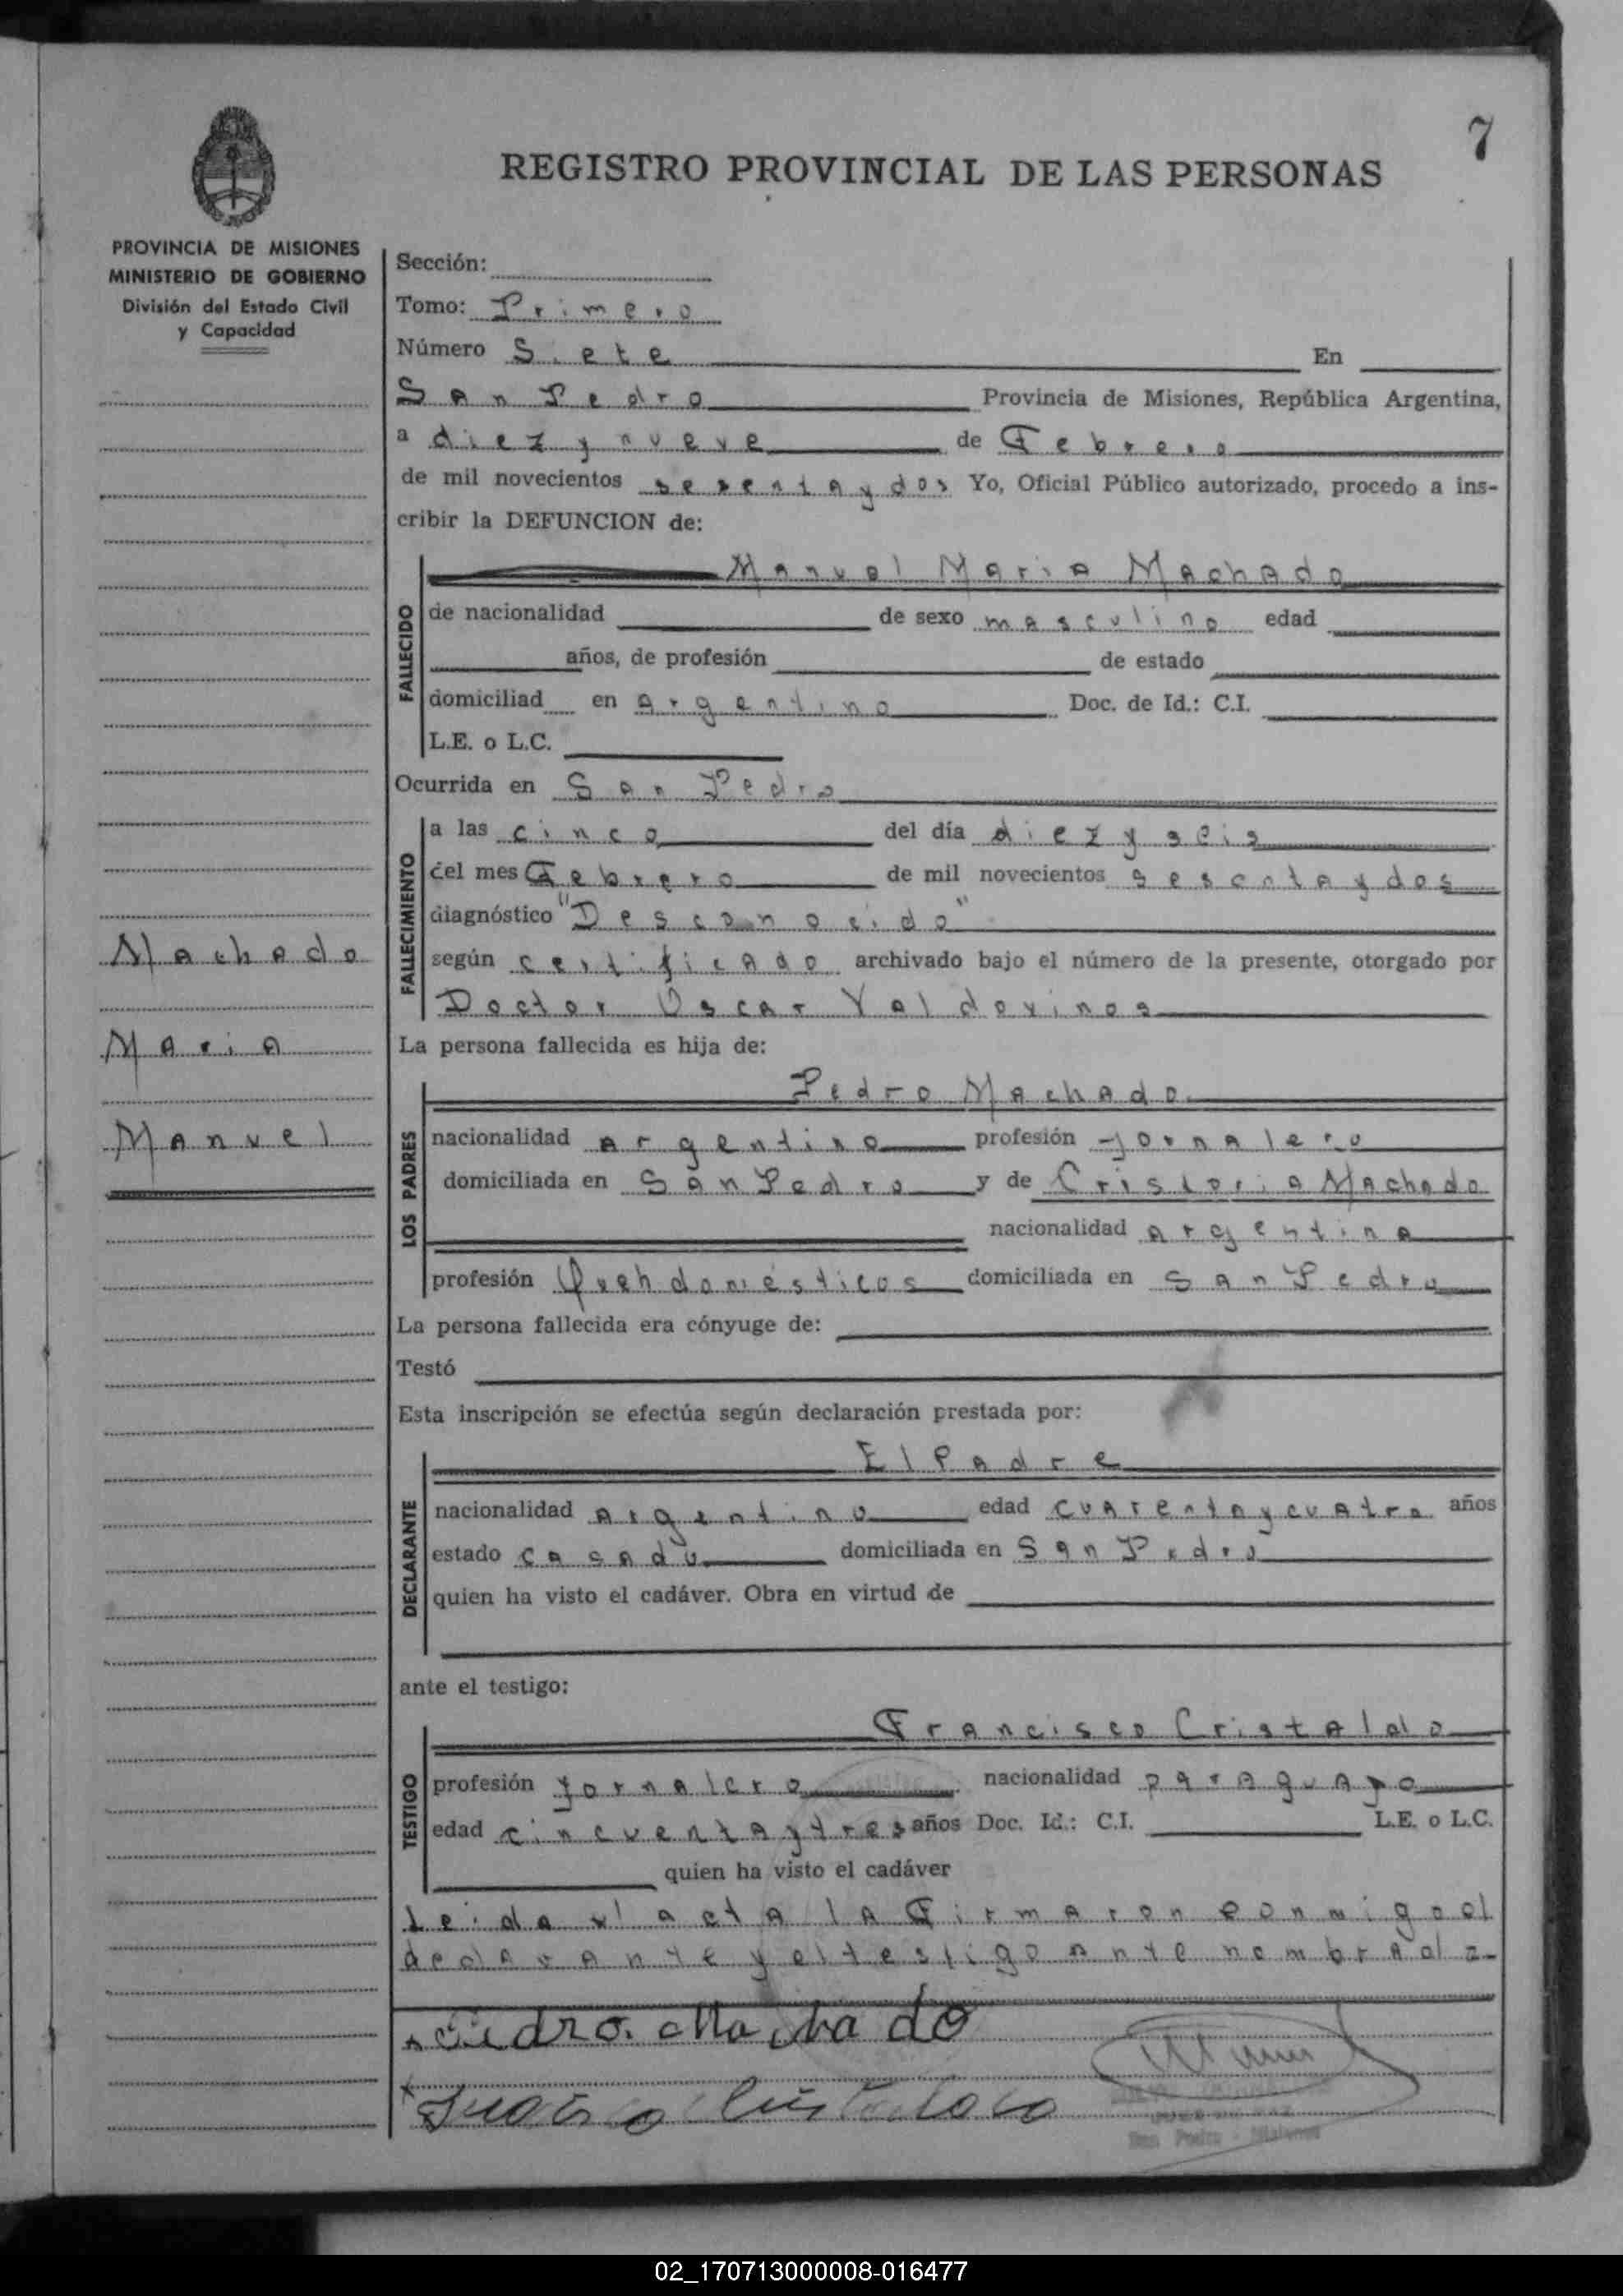 7
REGISTRO PROVINCIAL DE LAS PERSONAS
PROVINCIA DE MISIONES
MINISTERIO DE GOBIERNO
División del Estado Civil
y Capacidad
Machado
Maria
Manuel
Sección:
Tomo: Primero
Número Siete En
San Pedro Provincia de Misiones, República Argentina,
a diez y nueve de Febrero
de mil novecientos sesenta y dos Yo, Oficial Público autorizado, procedo a ins-
cribir la DEFUNCION de:
FALLECIDO
Manuel Maria Machado
de nacionalidad de sexo masculino edad
años, de profesión de estado
domiciliad en argentino Doc. de Id.: C.I.
L.E. o L.C.
Ocurrida en San Pedro
FALLECIMIENTO
a las cinco del día diez y seis
del mes Febrero de mil novecientos sesenta y dos
diagnóstico "Desconocido"
según certificado archivado bajo el número de la presente, otorgado por
Doctor Oscar Valdovinos
La persona fallecida es hija de:
LOS PADRES
Pedro Machado
nacionalidad argentino profesión jornalero
domiciliada en San Pedro y de Machado
nacionalidad argentina
profesión Queh domésticos domiciliada en San Pedro
La persona fallecida era cónyuge de:
Testó
Esta inscripción se efectúa según declaración prestada por:
DECLARANTE
El Padre
nacionalidad argentino edad cuarenta y cuatro años
estado casado domiciliada en San Pedro
quien ha visto el cadáver. Obra en virtud de
ante el testigo:
TESTIGO
Francisco Cristaldo
profesión jornalero nacionalidad paraguayo
edad cincuenta y tres años Doc. Id.: C.I. L.E. o L.C.
quien ha visto el cadáver
Leida el acta la Firmaron conmigo el
declarante y el testigo ante nombrado
Pedro. Machado
San Pedro - Misiones
02_170713000008-016477